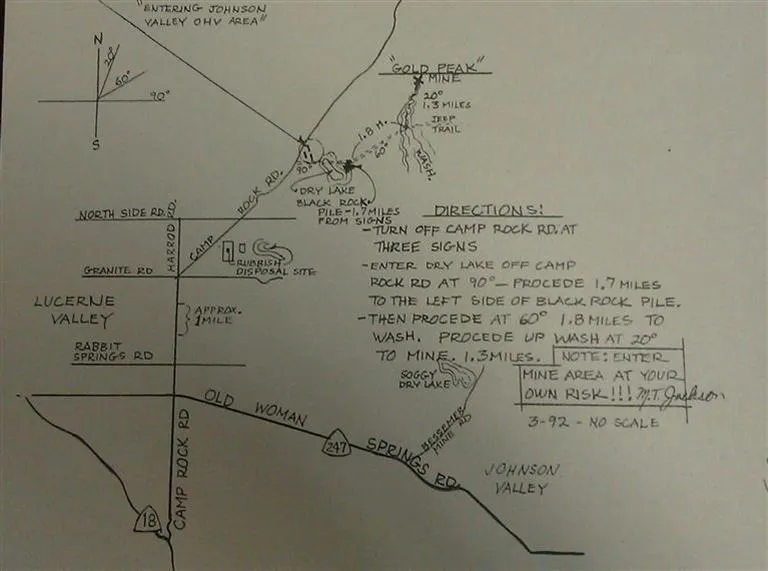 "ENTERING JOHNSON
VALLEY OHV AREA"
N
20°
60°
90°
S
"GOLD PEAK"
MINE
20°
1.3 MILES
JEEP
TRAIL
WASH.
1.8 M.
60°
90°
DRY LAKE
BLACK ROCK
PILE-1.7 MILES
FROM SIGNS
CAMP ROCK RD.
NORTH SIDE RD.
HARROD RD.
RUBBISH
DISPOSAL SITE
GRANITE RD
LUCERNE
VALLEY
APPROX.
1 MILE
RABBIT
SPRINGS RD
DIRECTIONS!
-TURN OFF CAMP ROCK RD. AT
THREE SIGNS
-ENTER DRY LAKE OFF CAMP
ROCK RD AT 90°-PROCEDE 1.7 MILES
TO THE LEFT SIDE OF BLACK ROCK PILE.
-THEN PROCEDE AT 60° 1.8 MILES TO
WASH. PROCEDE UP WASH AT 20°
TO MINE. 1.3 MILES.
NOTE: ENTER
MINE AREA AT YOUR
OWN RISK!!! M.T. Jackson
3-92 - NO SCALE
SOGGY
DRY LAKE
BESSEMER
MINE RD
OLD WOMAN SPRINGS RD.
247
JOHNSON
VALLEY
CAMP ROCK RD
18